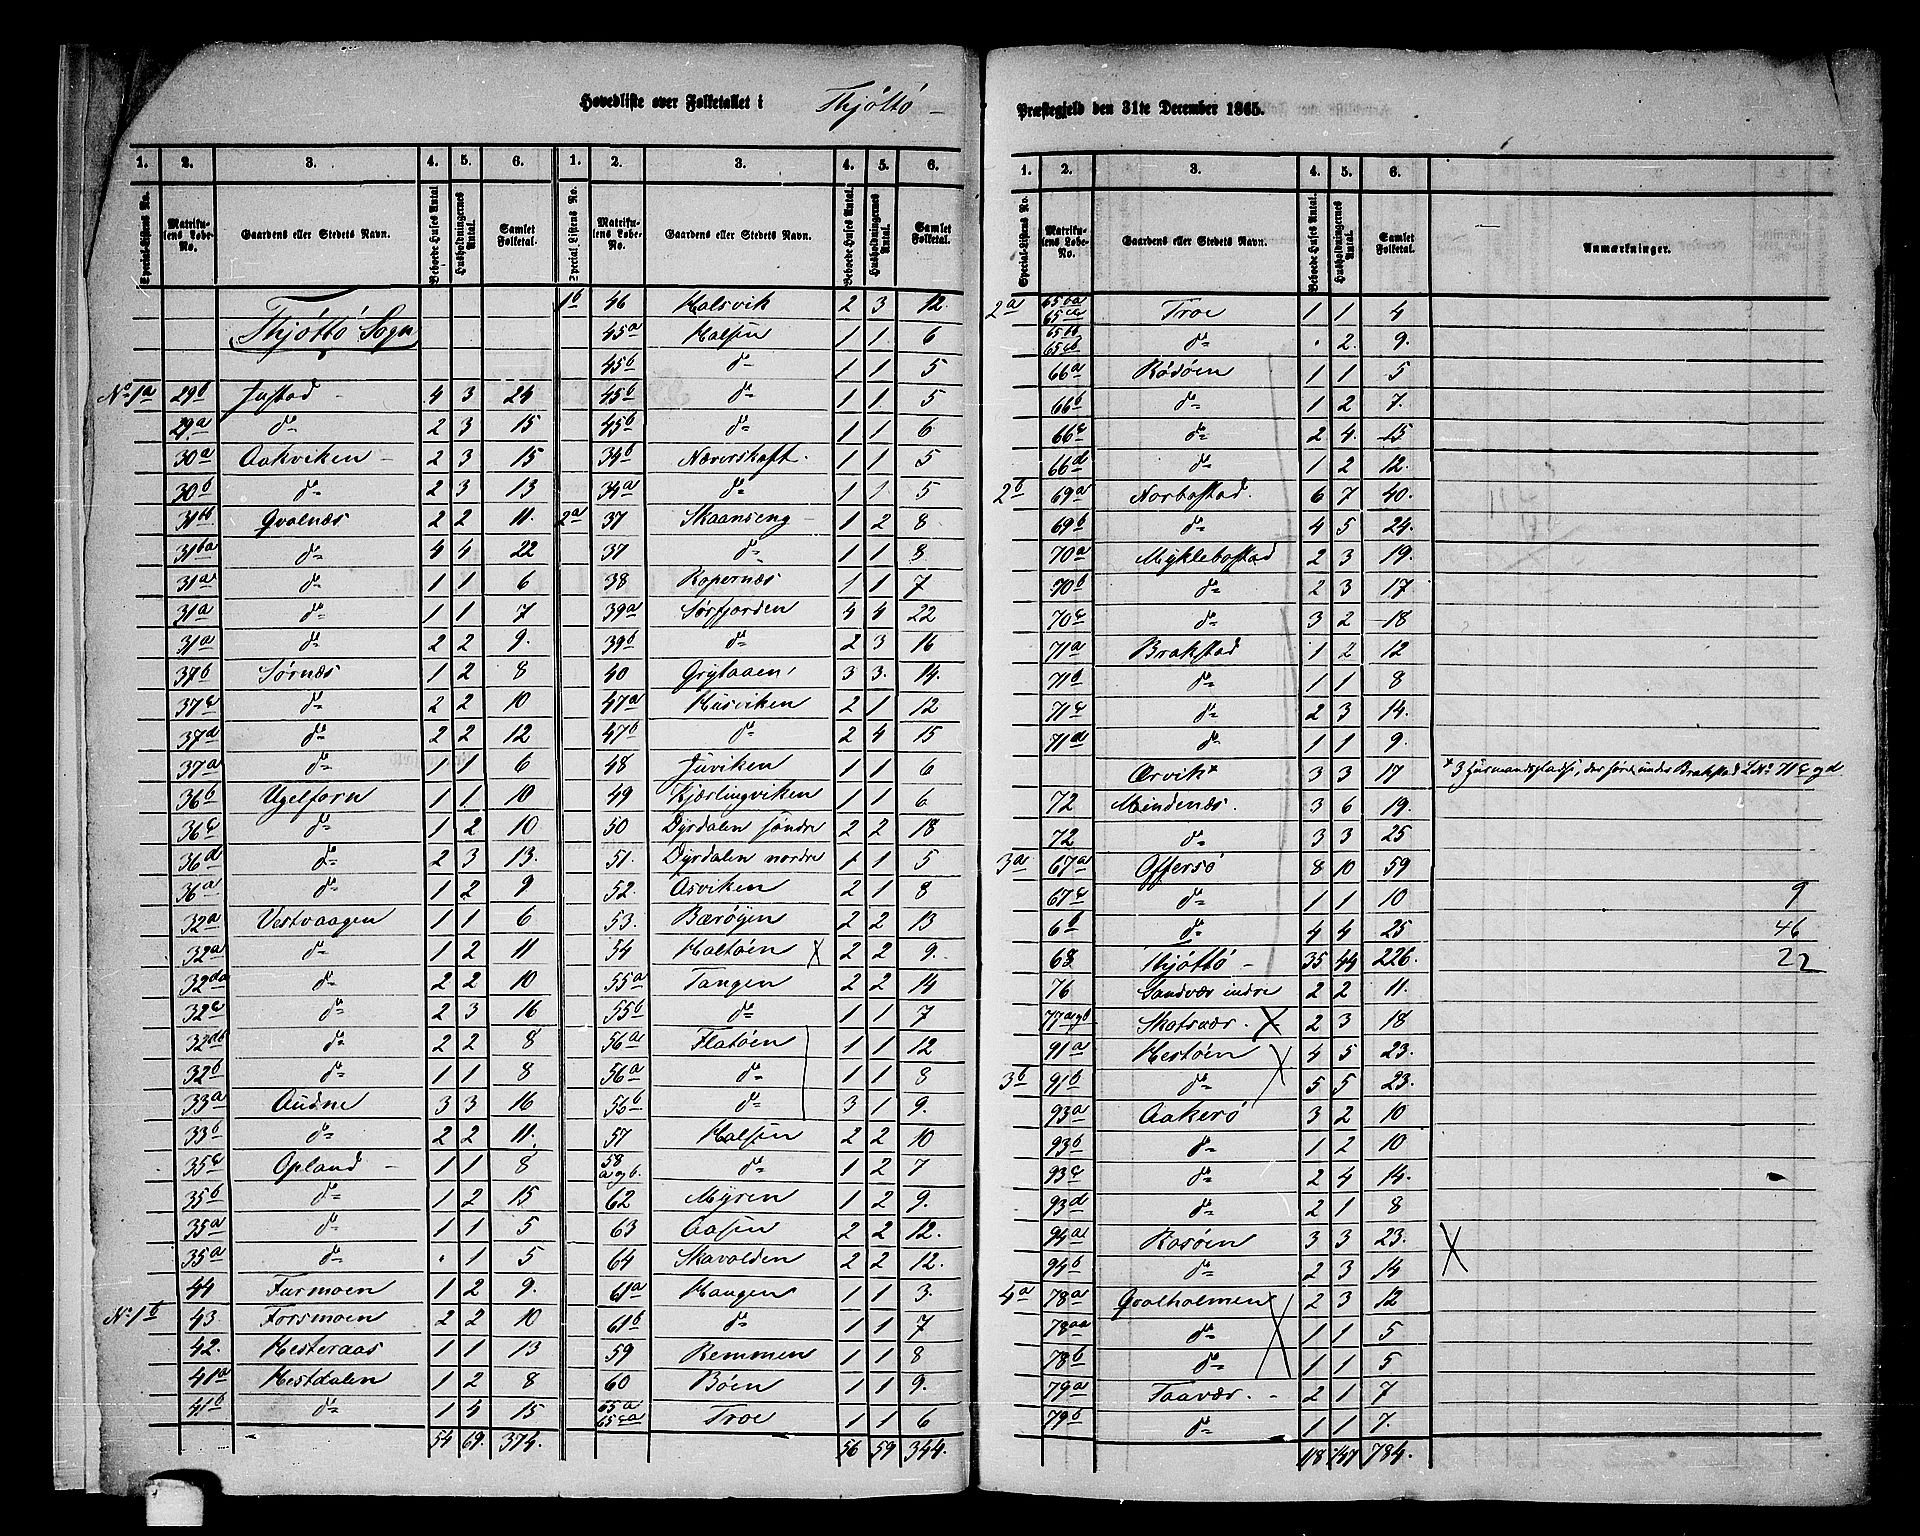 Hovedliste over Folketallet i Thjöttö
Præstegjeld den 31te December 1865.
1. 2. 3. 4. 5. 6. 1. 2. 3. 4. 5. 6.
Special-Listens No. Matrikulens Løbe-No. Gaardens eller Stedets Navn. Beboede Huses Antal Husholdningernes Antal. Samlet Folketal. Special-Listens No. Matrikulens Løbe-No. Gaardens eller Stedets Navn. Beboede Huses Antal. Husholdningernes Antal. Samlet Folketal.
Thjöttö Sogn
No 1a 29b Justad 4 3 24
29a do 2 3 15
30a Aakviken 2 3 15
30b do 2 3 13
31bb Qvalnæs 2 2 11.
31ba do 4 4 22
31a do 1 1 6
31a do 1 1 7
31a do 2 2 9.
37b Sörnæs 1 2 8
37c do 2 2 10
37d do 2 2 12
37a do 1 1 6
36b Ugelforn 1 1 10
36c do 1 2 10
36d do 2 3 13.
36a do 1 2 9
32a Vestvaagen 1 1 6
32a do 1 2 11
32da do 2 2 10
32c do 2 3 16
32db do 2 2 8
32b do 1 1 8
33a Audne 3 3 16
33b do 2 2 11.
35c Opland 1 1 8
35b do 1 2 15
35a do 1 1 5
35a do . 1 5
44 Furmoen 1 2 9.
No 1b 43. Forsmoen 2 2 10
42. Hesteraas 1 1 13
41a Hestdalen 1 2 8
41b do 1 4 15
54 69. 374.
1b 46 Halsvik 2 3 12
45a Halsen 1 1 6
45b do 1 1 5
45b do 1 1 5
45b do 1 1 6
34b Næverskaft. 1 1 5
34a do 1 1 5
2a 37 Skaanseng 1 2 8
37 do 1 1 8
38 Ropernæs 1 1 7
39a Sörfjorden 4 4 22
39b do 2 3 16
40 Grytaaen 3 3. 14.
47a Husviken 2 1 12
47b do 2 4 15
48 Juviken 1 1 6
49 Kjærlingviken 1 1 6
50 Dyrdalen söndre 2 2 18
51. Dyrdalen nordre 1 1 5
52. Aasviken 2 1 8
53. Bærøyen 2 2 13
54 Haltöen X 2 2 9.
55a Tangen 2 2 14
55b do 1 1 7
56a Flatöen 1 1 12
56a do 1 1 8
56b do 3 1 9.
57 Halsen 2 2 10
58 a og b. do 1 2 7
62 Myren 1 2 9.
63 Aasen 2 2 12.
64 Skavolden 2 2 12.
61a Haugen 1 1 3.
61b do 1 1 7
59 Remmen 1 1 8
60 Böen 1 1 9.
65a 65ca Troe 1 1 6
56 59 344.
1. 2. 3. 4. 5. 6.
Special-Listens No. Matrikulens Løbe-No. Gaardens eller Stedets Navn. Beboede Huses Antal. Husholdningernes Antal. Samlet Folketal. Anmærkninger.
2a 65ba 65ca Troe 1 1 4
65bb 65cb do . 2. 9.
66a Rödöen 1 1 5
66b do 1 2 7.
66c do 2 4. 15
66d do 1 2 12.
2b 69a Norbostad. 6 7 40.
69b do 4 5 24.
70a Myklebostad 2 3 19.
70b do 2 3 17.
70c do 3 2 18
71a Brakstad 1 2 12
71b do 1 1 8
71c do 2 3 14.
71d do 1 1 9.
Ærvik* 3 3 17 * 3 Huusmandspladse, der höre under Brakstad LNo 71c og d
72 Mindenæs. 3 6 19.
72 do 3 3 25
3a 67a Offersö 8 10 59
67c do 1 1 10 9
6b do 4 4 25 46
68 Thjöttö 35 44 226. 22
76 Sandvær indre 2 2 11.
77a og b Skotsvær. X 2 3 18
91a Hestöen X 4 5 23.
3b 91b do 5 5 23.
93a Aakerö 3 2 10
93b do 1 2 10
93c do 2 4 14.
93d do 2 1 8
94a Rosöen 3 3 23. X
94b do 2 3 14
4a 78a Qvalholmen X 2 3 12
78aa do 1 1 5
78b do 1 1 5
79a Faavær. 2 1 7
79b do 1 1 7.
118 147 784.